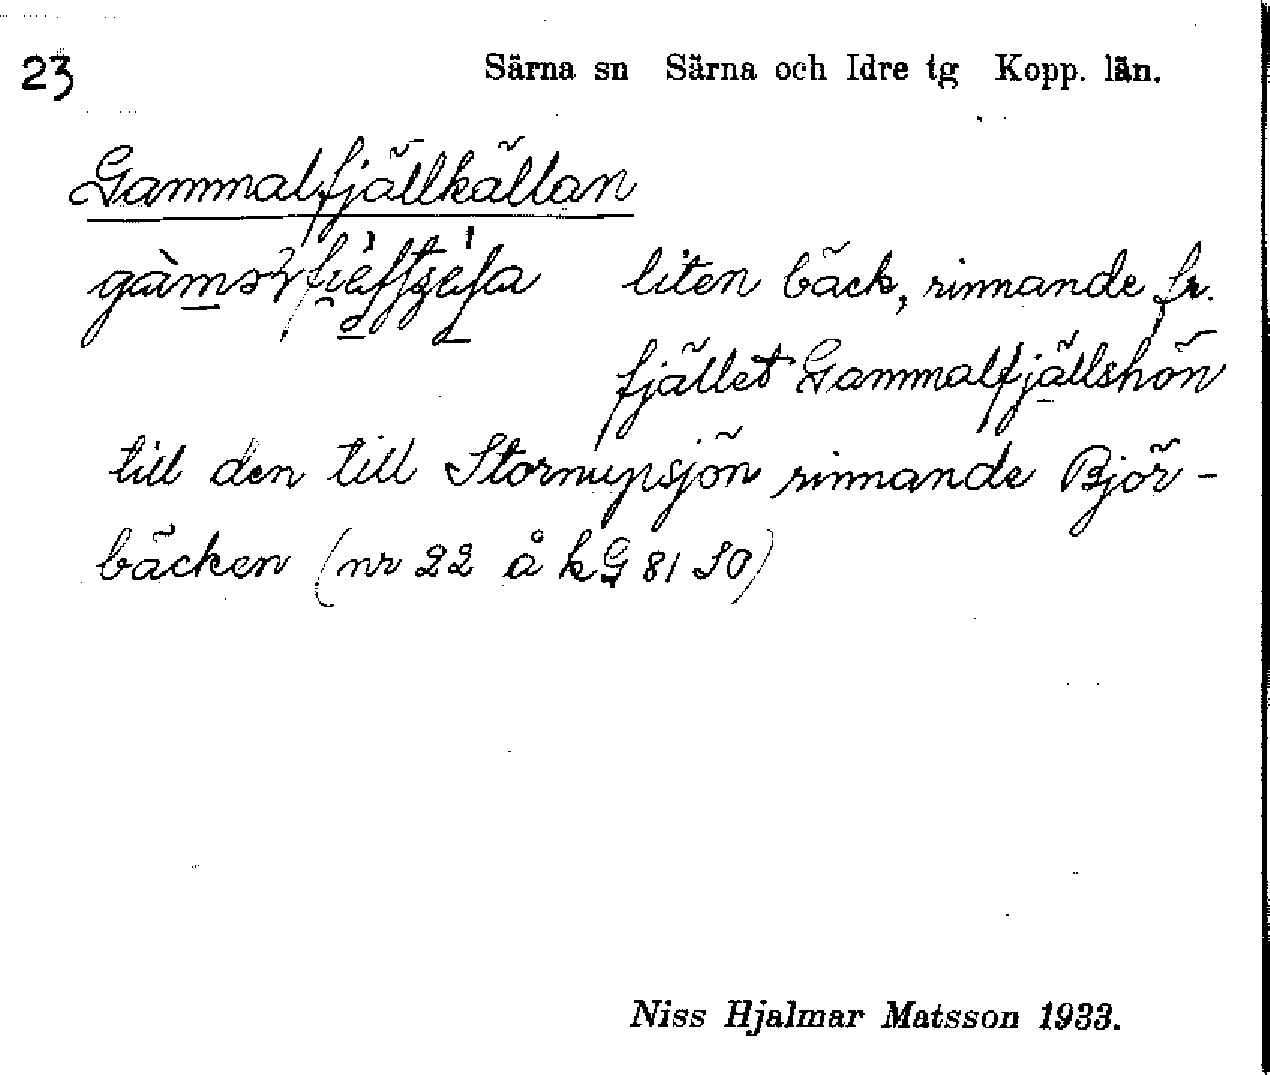 23 Särna sn Särna och Idre tg Kopp. län.
Gammalfjällkällan
liten bäck, rinnande fr.
fjället Gammalfjällshön
till den till Stornupsjön rinnande Björ-
bäcken (nr 22 å kG 81 SO)
Niss Hjalmar Matsson 1933.